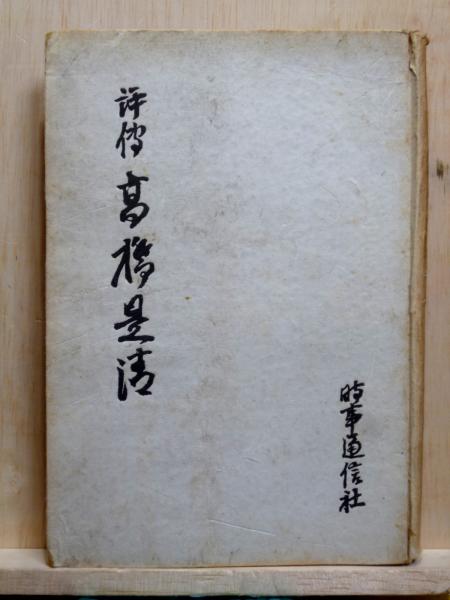 評傳 高橋是清
時事通信社